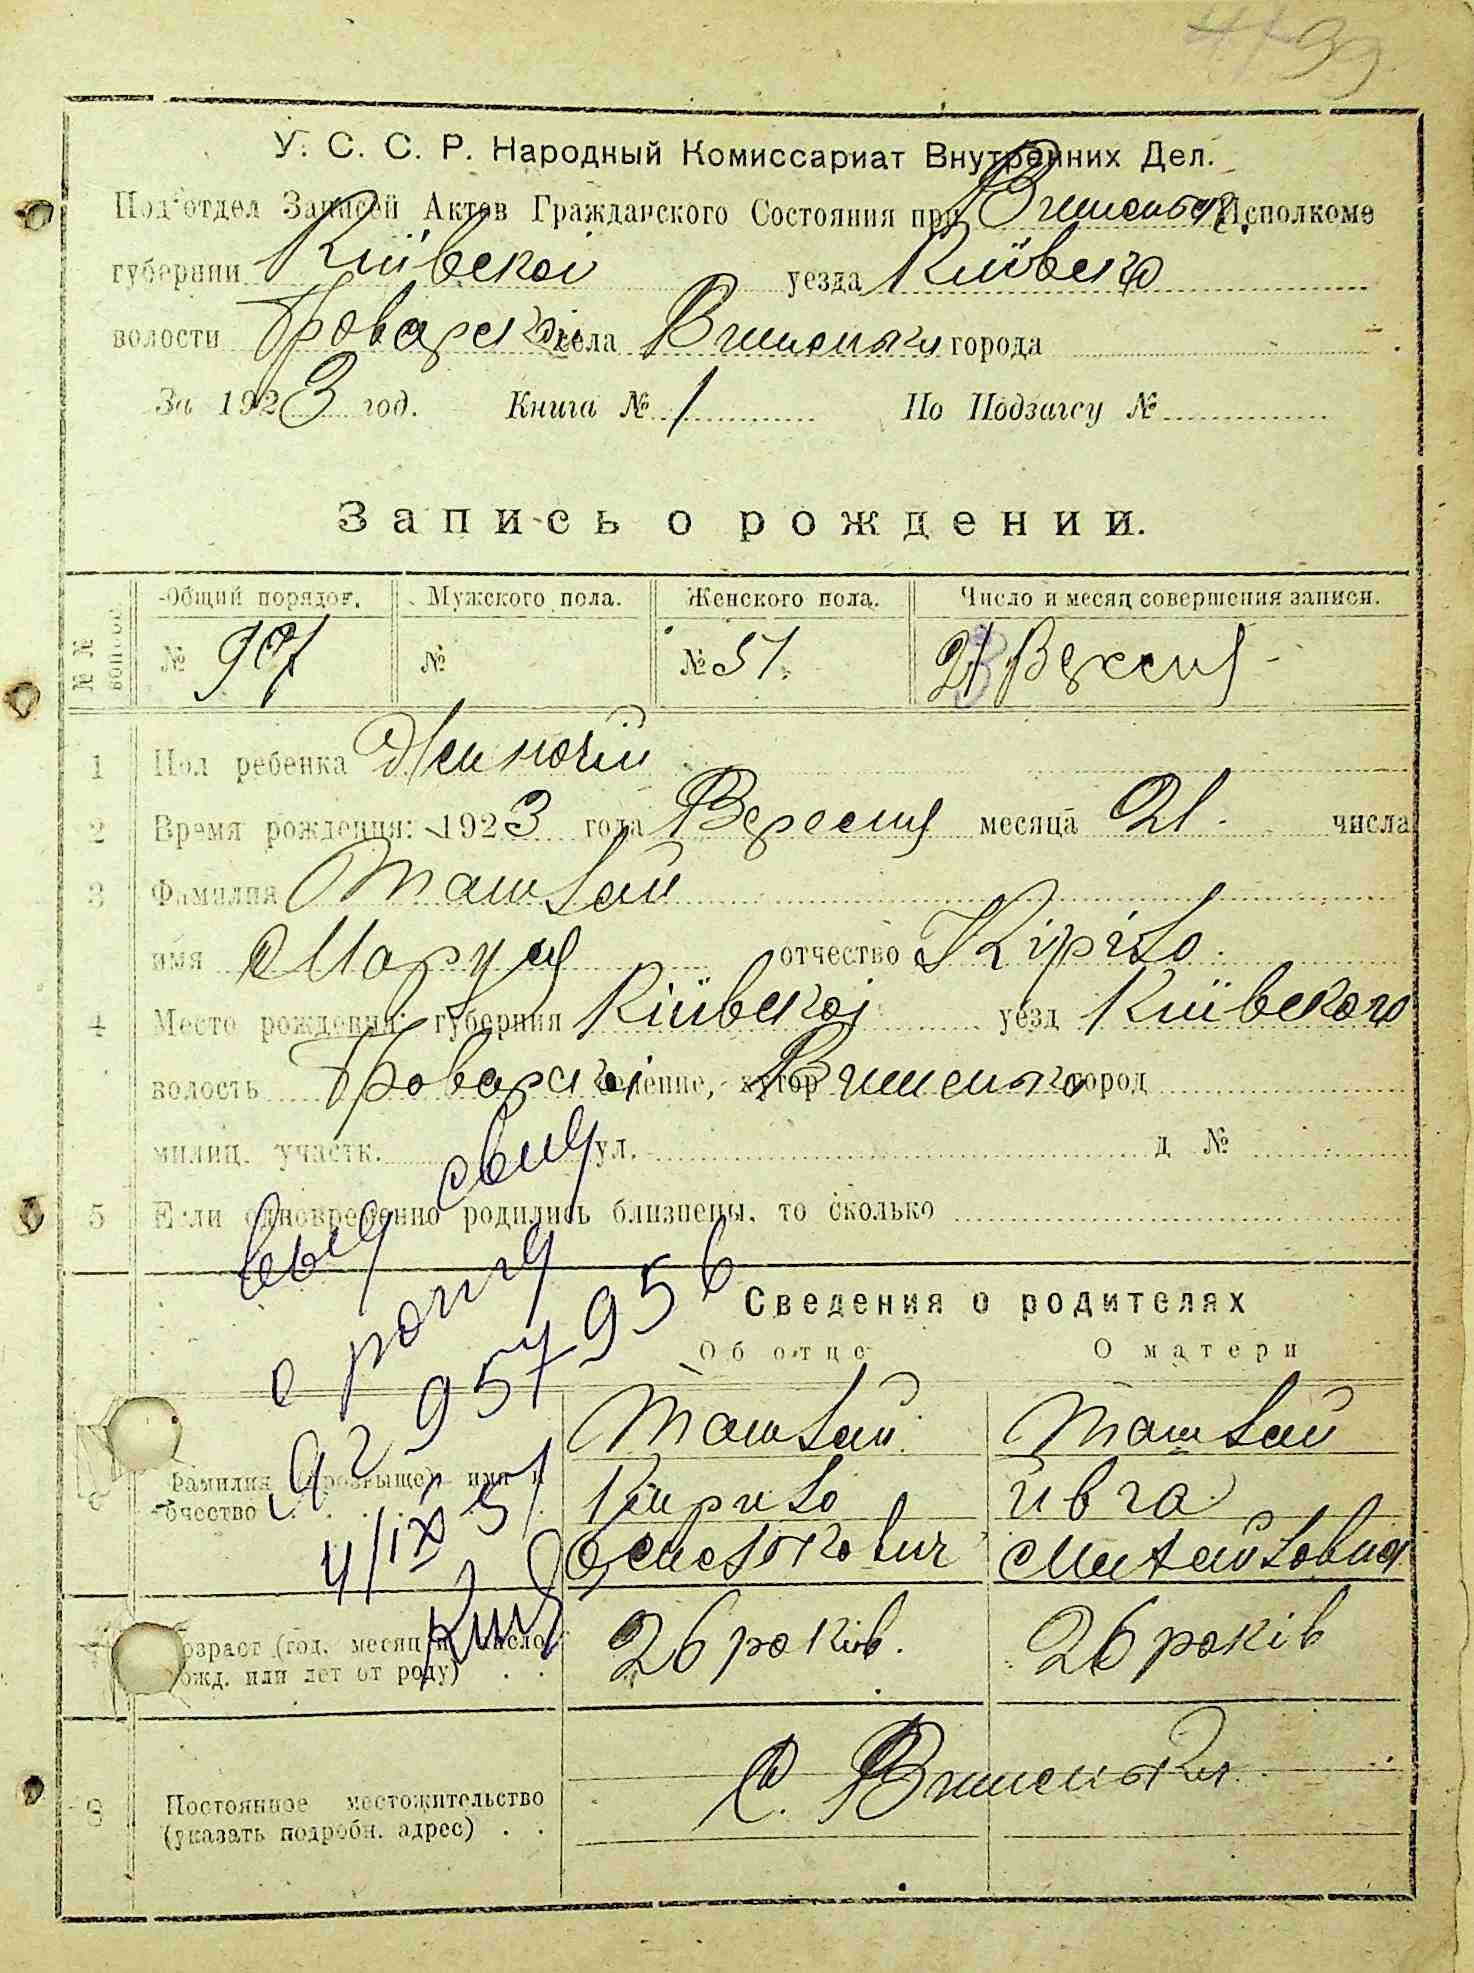 У. С. С. Р. Народный Комиссариат Внутренних Дел.
Под'отдел Записей Актов Гражданского Состояния при Вишеньск. Исполкоме
губернии Київскоі уезда Київсько
волости Броварскоі села Вишеньки города
За 1923 год. Книга № 1 По Подзагсу №
Запись о рождении.
№ № вопросов Общий порядок. Мужского пола. Женского пола. Число и месяц совершения записи.
№ 97 № № 51. 21 Вересня
1 Пол ребенка Жиночій
2 Время рождения: 1923 года Вересня месяца 21. числа
3 Фамилия
имя Маруся отчество Кіріло.
4 Место рождения: губерния Київскоі уезд Київского
волость Броварскоі селение, хутор Вишеньки город
милиц. участк. ул. д №
5 Если одновременно родились близнецы, то сколько
Сведения о родителях
Об отце О матери
Фамилия (прозвище), имя и
отчество
Кирило Ивга
Михайловна
Возраст (год, месяц и число
рожд. или лет от роду) 26 років. 26 років
8 Постоянное местожительство
(указать подробн. адрес) С. Вишеньки
4/IX 51